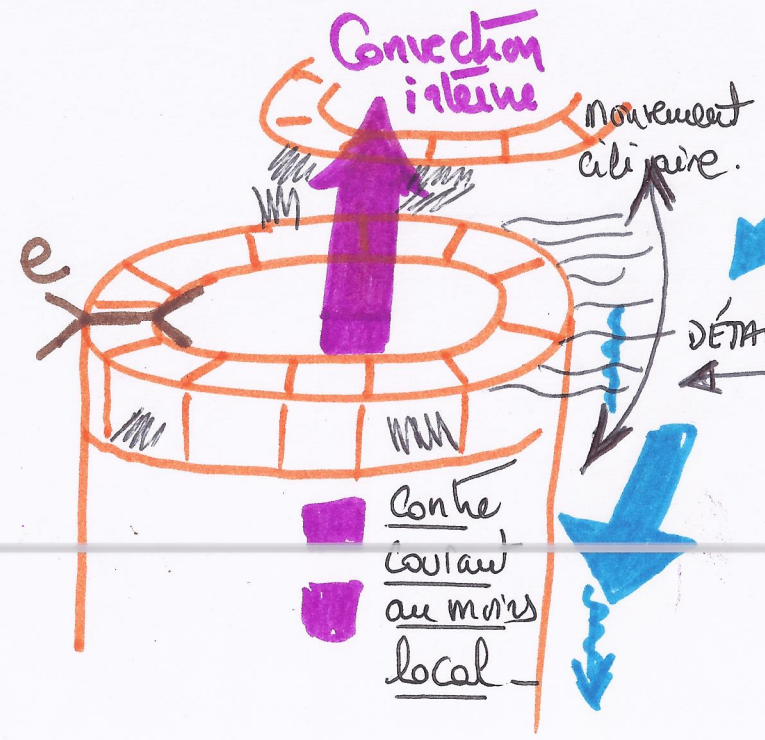 Convection
interne
mouvement
ciliaire.
e
DÉTA
Contre
courant
au moins
local